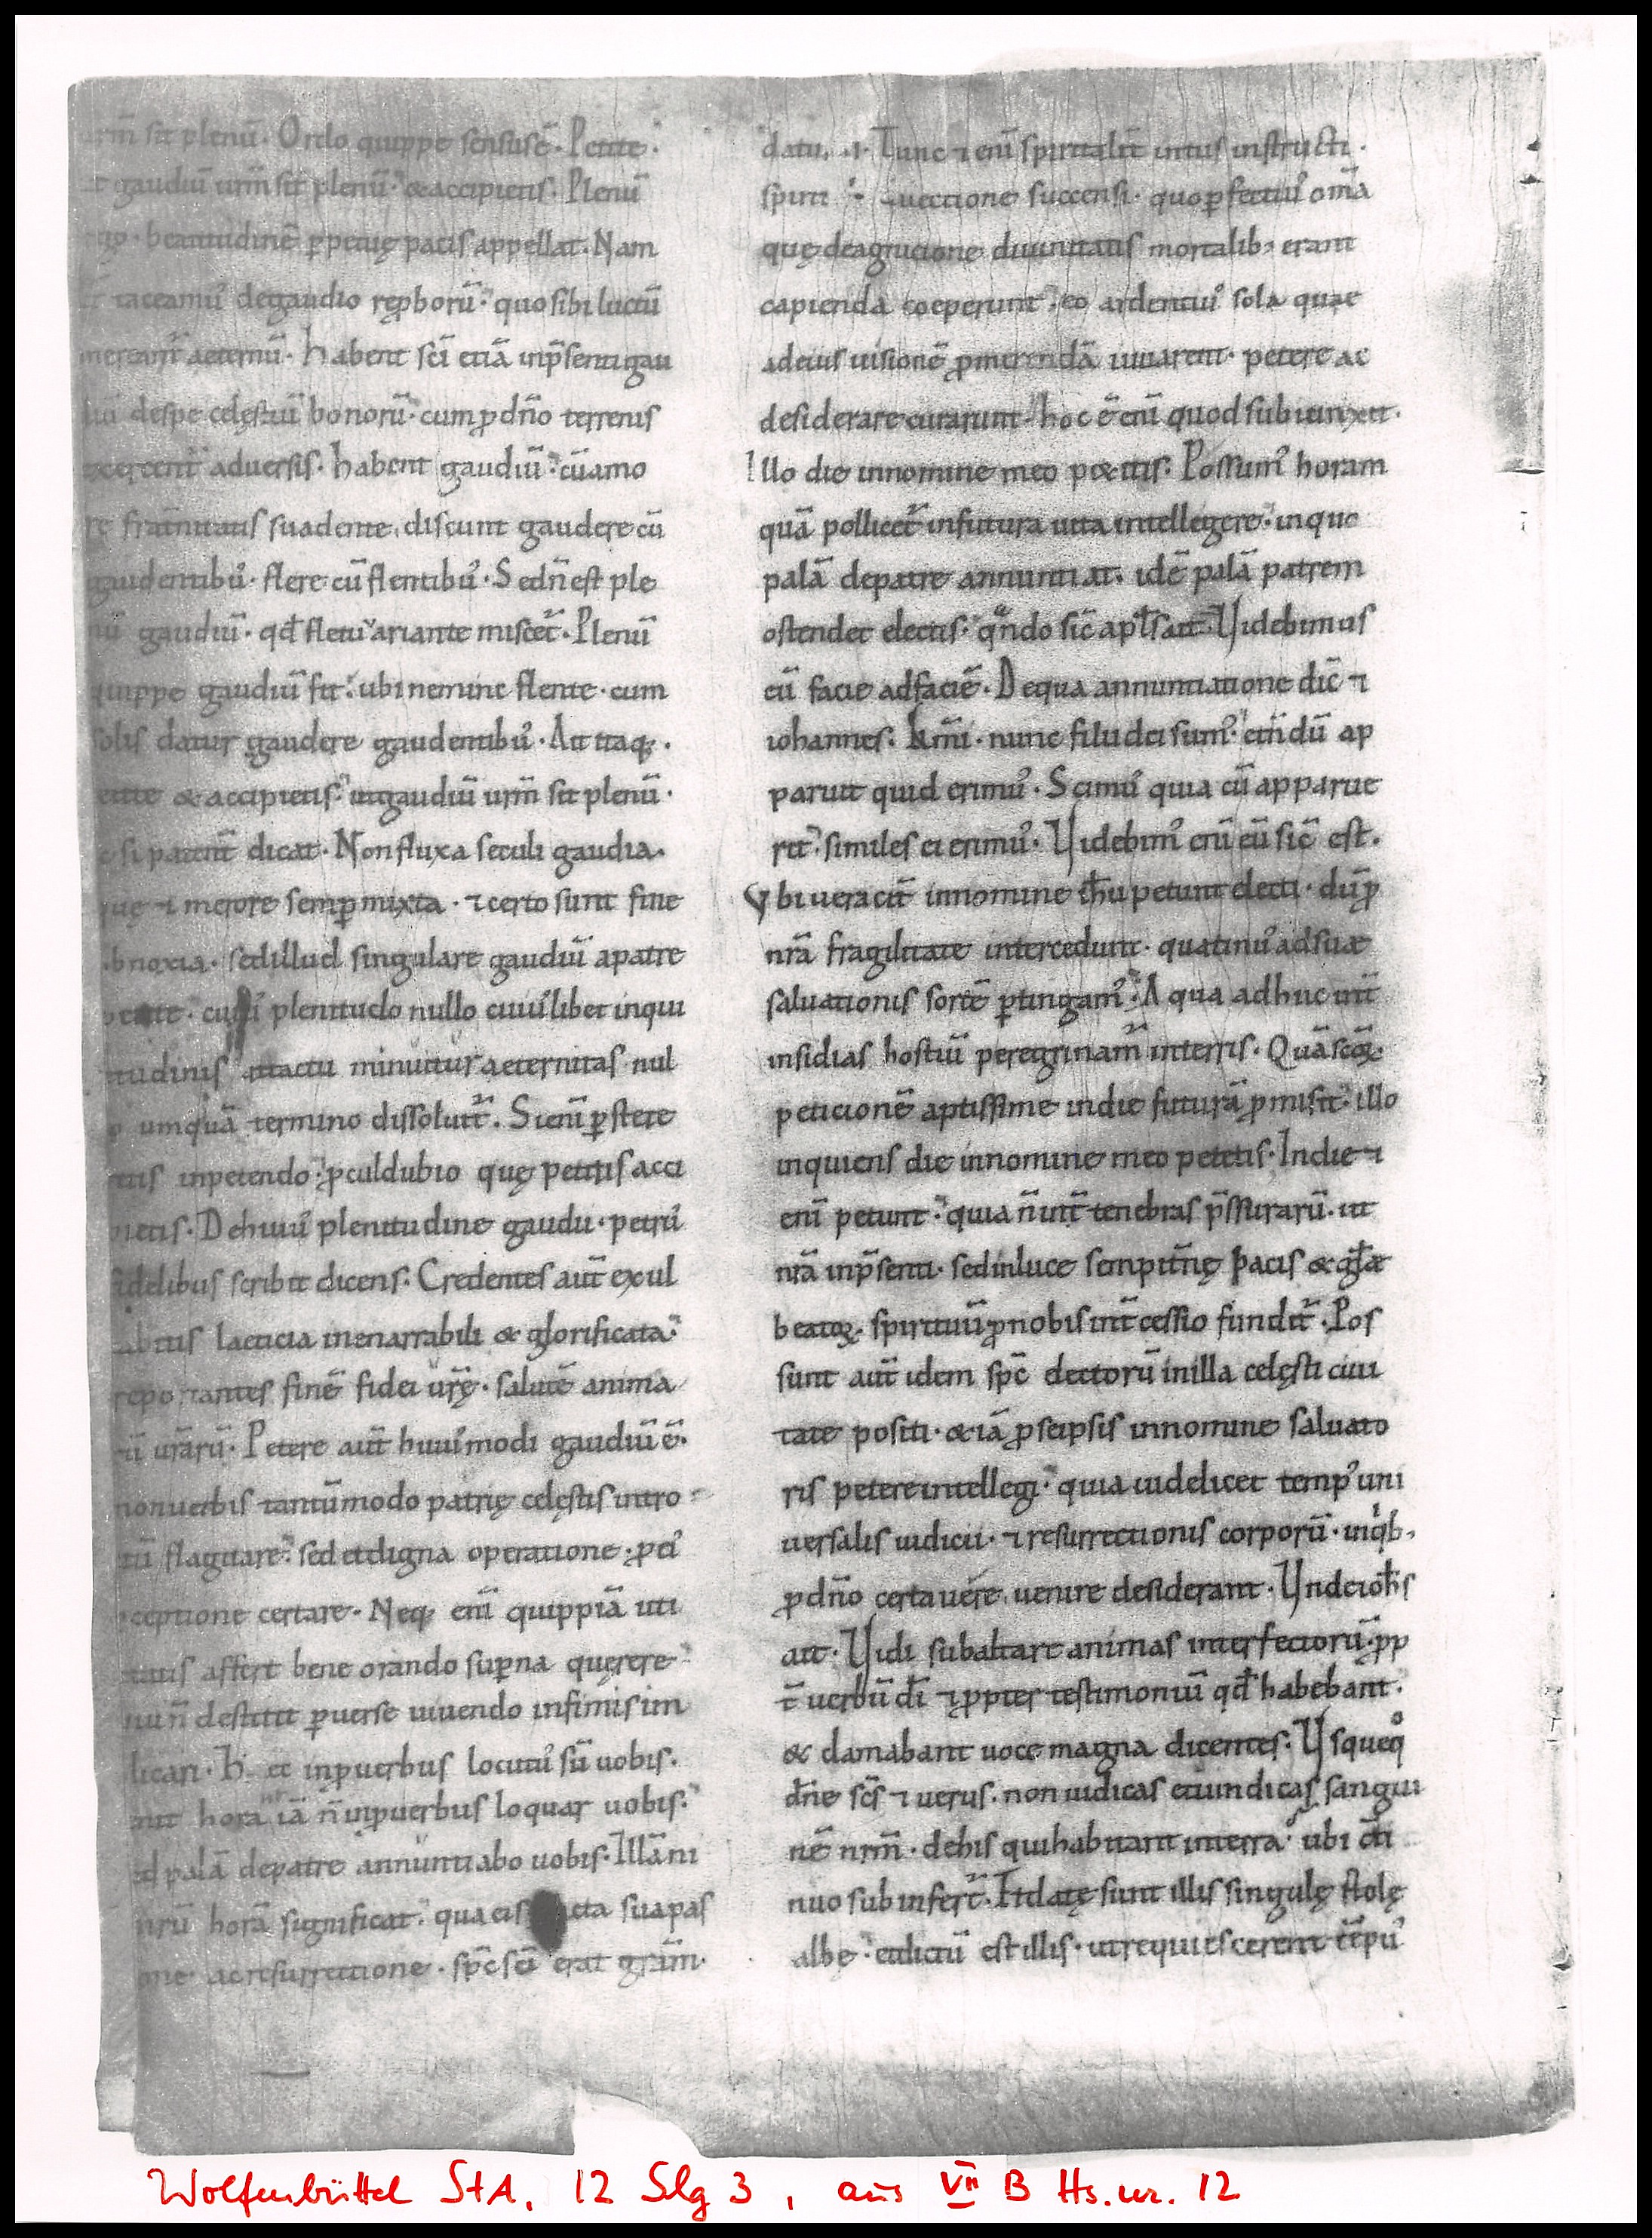 urm̄ sit plenū. Ordo quippe sensus ē. Petite.
ut gaudiū urm̄ sit plenū. & accipietis. Plenū
beatitudinē ꝑpetuę pacis appellat. Nam
ut taceamꝰ degaudio reꝓborū. quo sibi luctū
mereant᷑ aeternū. habent sc̄i etiā inp̄senti gau
dui despe celęstiū bonorū. cum ꝓ dn̄o terrenis
exercent᷑ aduersis. habent gaudiū. cū amo
re frat̄nitatis suadente, discunt gaudere cū
gaudentibꝰ. flere cū flentibꝰ. Sed n̄ est ple
nū gaudiū. qd̄ fletu uariante miscet᷑. Plenū
quippe gaudiū fit. ubi nemine flente. cum
solis datur gaudere gaudentibꝰ. Ait itaq;.
etite & accipietis. ut gaudiū urm̄ sit plenū.
c si patent̄ dicat. Non fluxa seculi gaudia.
quę ⁊ merore semꝑ mixta. ⁊ certo sunt fine
obnoxia. sed illud singulare gaudiū apatre
petite. cuiꝰ plenitudo nullo cuiuslibet inqui
etudinis attactu minuitur aeternitas nul
o umquā termino dissoluit᷑. Si enī ꝑstete
ritis inpetendo. ꝓculdubio quę petitis acci
pietis. Dehuiꝰ plenitudine gaudii. petrꝰ
fidelibus scribit dicens. Credentes aut̄ exul
tabitis laeticia inenarrabili & glorificata.
reportantes finē fidei urę̄. salutē anima
rū urārū. Petere aut̄ huiꝰmodi gaudiū ē.
non uerbis tantūmodo patrię celęstis intro
itū flagitare. sed et digna operatione. ꝓ eiꝰ
ceptione certare. Neq; enī quippiā uti
litatis affert bene orando suꝑna quęrere
qui n̄ destitit ꝑuerse uiuendo infimis im
plicari. H ec inꝓuerbiis locutꝰ sū uobis.
enit hora iā n̄ inꝓuerbiis loquar uobis.
ed palā depatre annuntiabo uobis. Illā ni
mirū horā significat. qua eis acta sua pas
one. ac resurrectione. sp̄c sc̄i erat grām.
datu. Tunc ⁊ enī spiritalit̄ intus instructi.
spirit dilectione succensi. quo ꝑfectiꝰ om̄a
quę deagnicione diuinitatis mortalib; erant
capienda coeperunt. eo ardentiꝰ sola quae
adeius uisionē ꝓmerendā iuuarent. petere ac
desiderare curarunt. hoc ē enī quod subiunxit.
Illo die innomine meo petetis. Possumꝰ horam
quā pollicet᷑ infutura uita intellegere. in quo
palā depatre annuntiat. idē palā patrem
ostendet electis. qn̄do sic̄ apl̄s ait. Uidebimus
eū facie adfaciē. De qua annuntiatione dic̄ ⁊
iohannes. km̄i. nunc filii dei sumꝰ. et n̄dū ap
paruit quid erimꝰ. Scimꝰ quia cū apparue
rit. similes ei erimꝰ. Uidebimꝰ enī eū sic̄ est.
Ubi ueracit̄ innomine ih̄u petunt electi. dū ꝓ
nrā fragilitate intercedunt. quatinꝰ adsuae
saluationis sortē ꝑtingamꝰ. A qua adhuc int̄
insidias hostiū peregrinam᷑ interris. Quā scaz
peticionē aptissime indie futurā ꝓmisit. illo
inquiens die innomine meo petetis. In die ⁊
enī petunt. quia n̄ int̄ tenebras p̄ssurarū. ut
nrā inp̄senti. sed inluce sempit̄nę pacis & gl̄ae
beatoꝝ. spirituū ꝓ nobis int̄cessio fundit᷑. Pos
sunt aut̄ idem sp̄c electorū in illa celęsti ciui
tate positi. & iā ꝓ seipsis innomine saluato
ris petere intellegi. quia uidelicet tempꝰ uni
uersalis iudicii. ⁊ resurrectionis corporū. inqib;
ꝓ dn̄o certauere. uenire desiderant. Unde ioh̄s
ait. Uidi sub altare animas interfectorū. ꝓp
t̄ uerbū dī ⁊ ꝓpter testimoniū qd̄ habebant.
& clamabant uoce magna dicentes. Usqueqͦ
dn̄e sc̄s ⁊ uerus. non iudicas et uindicas sangui
nē nrm̄. dehis qui habitant interra. ubi cti
nuo sub infert᷑. Et datę sunt illis singulę stolę
albę. et dictū est illis. ut requiescerent tēpꝰ
Wolfenbüttel StA, 12 Slg 3, aus VII B Hs. nr. 12